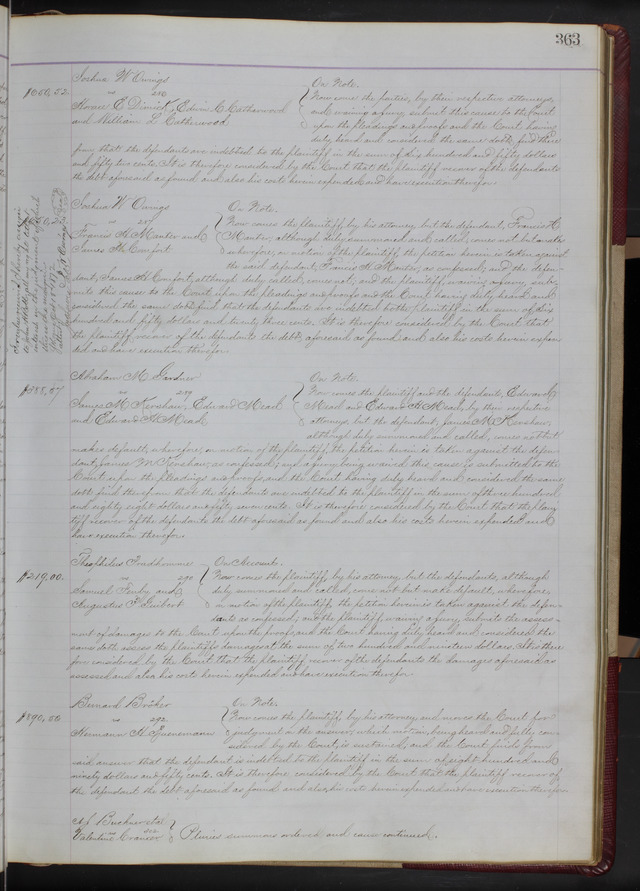 363
Joshua W Owings
vs
Horace E Dimick, Edwin C Catherwood
and William L Catherwood
On Note.
Now come the parties, by their respective attorneys,
and waiving a jury submit this cause to the Court
upon the pleadings and proofs and the Court having
duly heard and considered the same doth find there
from that the defendants are indebted to the plaintiff in the sum of hundred and fifty dollars
and fifty two cents. It is therefore considered by the Court that the plaintiff recover of the defendants
the debt aforesaid as found and also his costs herein expended and have execution therefor.
Joshua W Owings
vs 287
Francis H Manter and
James H Comfort
On Note.
Now comes the plaintiff, by his attorney, but the defendant, Francis H
Manter, although duly summoned and called, comes not but makes
wherefore, on motion of the plaintiff, the petition herein is taken against
the said defendant, Francis H Manter, as confessed; and the defen-
dant, James H Comfort, although duly called, comes not; and the plaintiff, waiving a jury, sub-
mits this cause to the Court upon the pleadings and proofs and the Court having duly heard and
considered the same doth find that the defendants are indebted to the plaintiff in the sum of
hundred and fifty dollars and twenty three cents. It is therefore considered by the Court that
the plaintiff recover of the defendants the debt aforesaid as found and also his costs herein expen-
ded and have execution therefor.
Abraham M Gardner
vs 289
James M Kershaw, Edward Mead
and Edward H Mead
$388,57
On Note.
Now comes the plaintiff and the defendants, Edward
Mead and Edward H Mead, by their respective
attorneys, but the defendant, James M Kershaw,
although duly summoned and called, comes not but
makes default; wherefore, on motion of the plaintiff, the petition herein is taken against the defen-
dant, James M Kershaw, as confessed; and a jury being waived this cause is submitted to the
Court upon the pleadings and proofs, and the Court having duly heard and considered the same
doth find therefrom that the defendants are indebted to the plaintiff in the sum of three hundred
and eighty eight dollars and fifty seven cents. It is therefore considered by the Court that the plain-
tiff recover of the defendants the debt aforesaid as found and also his costs herein expended and
have execution therefor.
$219,00.
Theophilus Prudhomme
vs 290
Samuel and
Augustus P Guibert
On Account.
Now comes the plaintiff, by his attorney, but the defendants, although
duly summoned and called, come not but make default; wherefore,
on motion of the plaintiff, the petition herein is taken against the defen-
dants as confessed; and the plaintiff, waiving a jury, submits the assess-
ment of damages to the Court upon the proofs, and the Court having duly heard and considered the
same doth assess the plaintiff's damages at the sum of two hundred and nineteen dollars. It is there-
fore considered by the Court that the plaintiff recover of the defendants the damages aforesaid as
assessed and also his costs herein expended and have execution therefor.
$890,50
Bernard Bröker
vs 292
Hermann H
On Note.
Now comes the plaintiff, by his attorney, and moves the Court for
judgment on the answer, which motion, being heard and fully con-
sidered by the Court, is sustained, and the Court finds from
said answer that the defendant is indebted to the plaintiff in the sum of eight hundred and
ninety dollars and fifty cents. It is therefore considered by the Court that the plaintiff recover of
the defendant the debt aforesaid as found and also his costs herein expended and have execution therefor.
Buckner et al
vs
Valentine
Pluries summons ordered and cause continued.